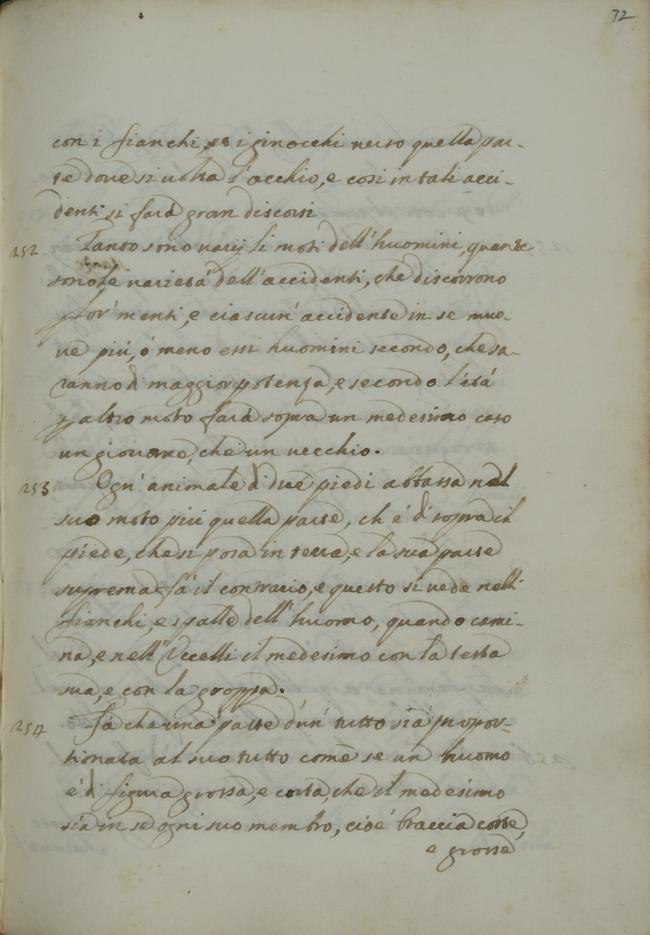 72
con i fianchi, et i ginocchi verso quella par-
te dove si volta l'occhio, e cosi in tali acci-
denti si farà gran discorsi
252 Tanto sono varij li moti dell'huomini, quante
sono le varietà dell'accidenti, che discorrono
p lor' menti, e ciascun' accidente in se muo-
ve più, ò meno essi huomini secondo, che sa-
ranno di maggior potenza, e secondo l'età
p altro moto farà sopra un medesimo caso
un giovane, che un vecchio.
253 Ogn' animale di due piedi abbassa nel
suo moto più quella parte, ch'è di sopra il
piede, che si posa in terra, e la sua parte
suprema fà il contracio, e questo si vede nelli
fianchi, e spalle dell'huomo, quando cami-
na, e nell'Uccelli il medesimo con la testa
sua, e con la groppa.
254 Fà che una parte d'un' tutto sia propor-
tionata al suo tutto come se un huomo
è di figura grossa, e corta, che il medesimo
sia in se ogni suo membro, cioè braccia corte,
e grosse